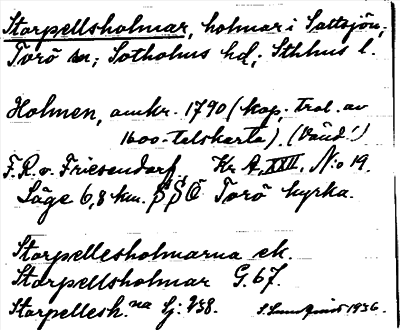 Storpellsholmar, holmar i Saltsjön;
Torö sn; Sotholms hd; Sthlms l.
Holmen, omkr. 1790 (kop. trol. av
1600-talskarta). (Vänd!)
F.R.v. Friesendorf Kr A, XXII, N:o 19.
Läge 6,8 km. SSÖ Torö kyrka.
Storpellesholmarna ek.
Storpellsholmar G. 67.
Storpellesh.na Sj: 238. 1936.